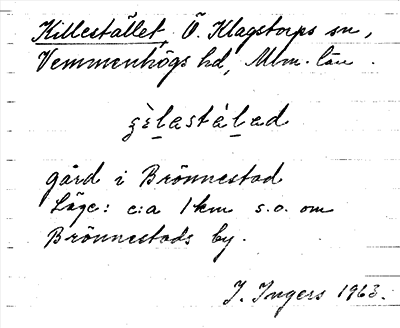 Killestället, Ö. Klagstorps sn,
Vemmenhögs hd, Mlm. län.
ʒèlastálad
gård i Brönnestad
Läge: c:a 1 km s.o. om
Brönnestads by.
I. Ingers 1963.